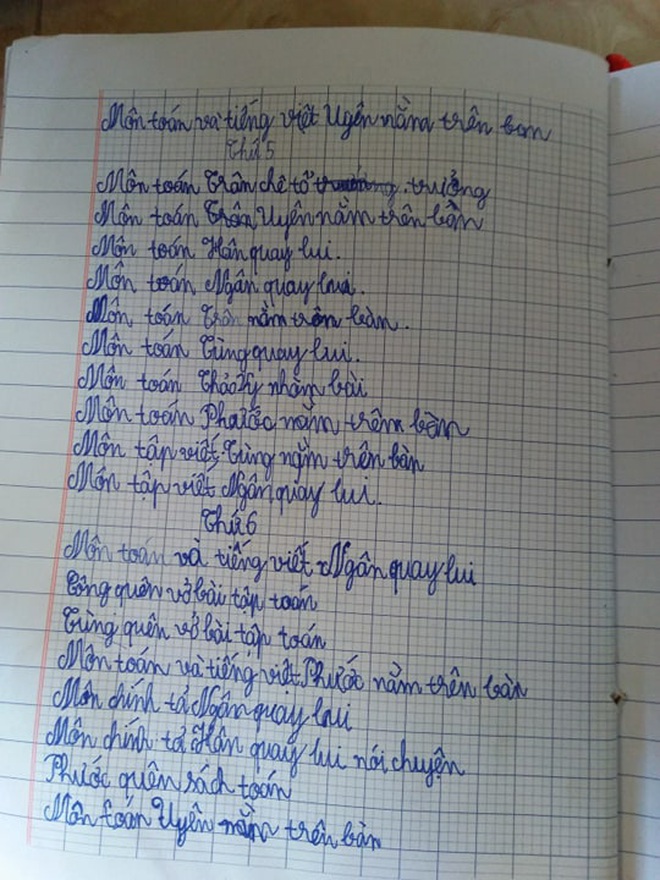 Môn toán và tiếng việt Uyên nằm trên bàn
Thứ 5
Môn toán Trân chê tổ trưởng
Môn toán Trân Uyên nằm trên bàn
Môn toán Hân quay lui.
Môn toán Ngân quay lui.
Môn toán Trân nằm trên bàn.
Môn toán Tùng quay lui.
Môn toán Thảo Vy nhằm bài
Môn toán Phước nằm trêm bàn
Môn tập viết Tùng nằm trên bàn
Môn tập viết Ngân quay lui.
Thứ 6
Môn toán và tiếng viết Ngân quay lui
Công quên vở bài tập toán
Tùng quên vở bài tập toán
Môn toán và tiếng việt Phước nằm trên bàn
Môn chính tả Ngân quay lui
Môn chính tả Hân quay lui nói chuyện
Phước quên sách toán
Môn toán Uyên nằm trên bàn